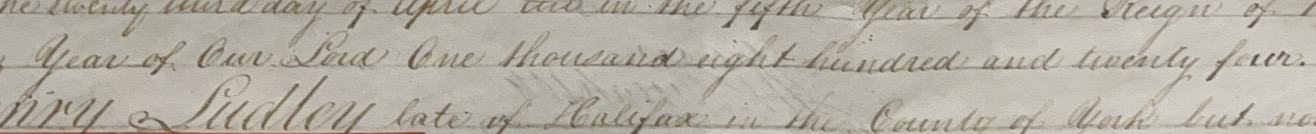 twenty third day of April in the fifth Year of the Reign of
Year of Our Lord One thousand eight hundred and twenty four.
Ludley late of Halifax in the County of York but